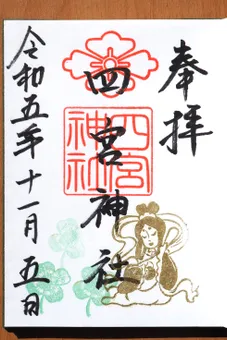 奉拝
四宮神社
四宮神社
令和五年十一月五日